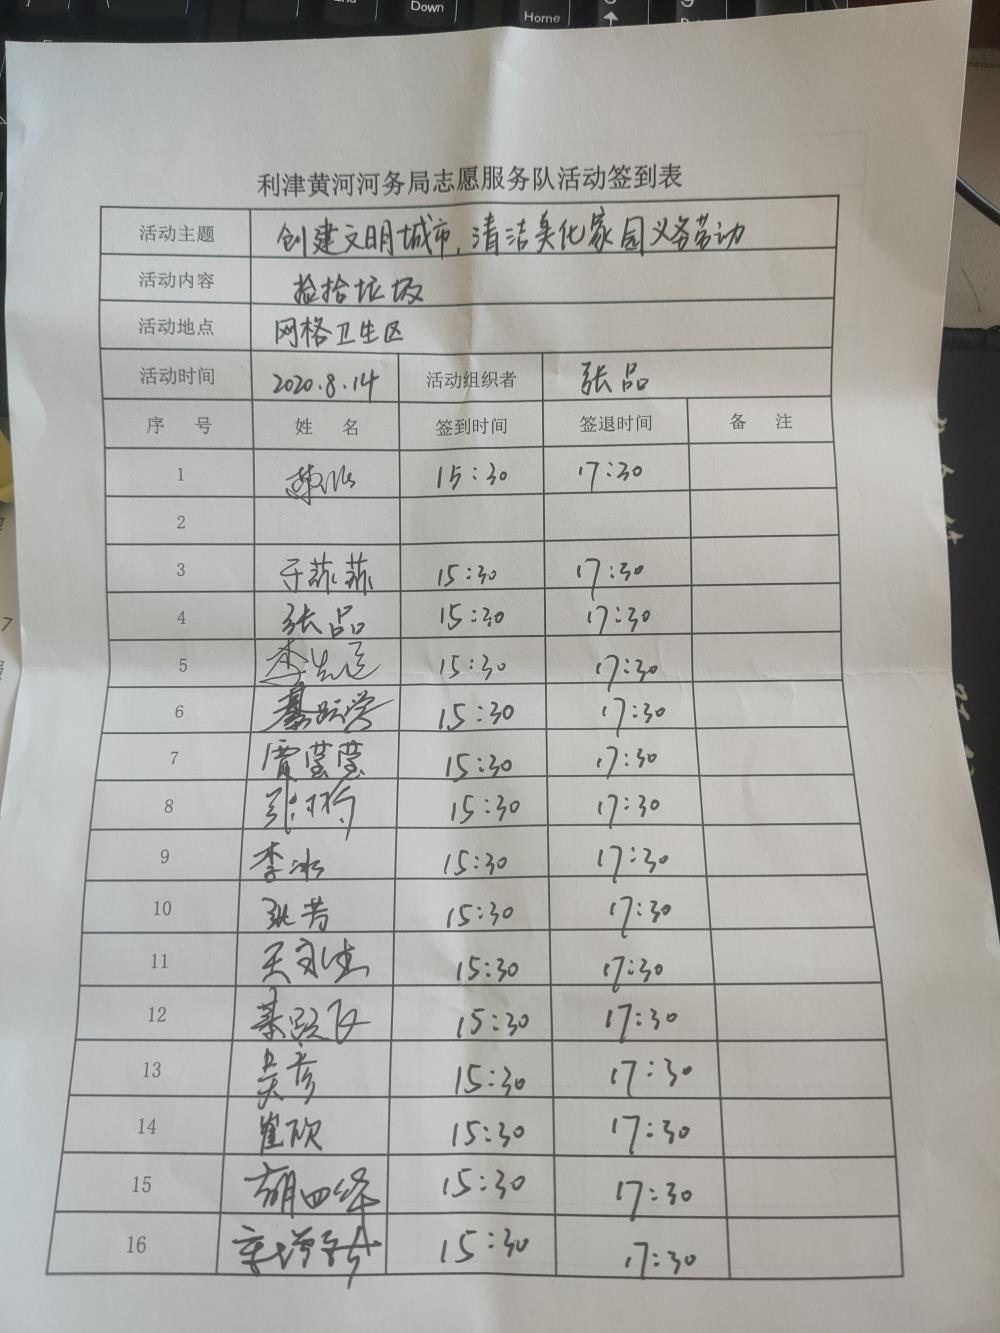 利津黄河河务局志愿服务队活动签到表
活动主题 创建文明城市,清洁美化家园义务劳动
活动内容 捡拾垃圾
活动地点 网格卫生区
活动时间 2020.8.14 活动组织者 张品
序 号 姓 名 签到时间 签退时间 备 注
1 15:30 17:30
2
3 于菲菲 15:30 17:30
4 张品 15:30 17:30
5 李 15:30 17:30
6 15:30 17:30
7 贾莹莹 15:30 17:30
8 15:30 17:30
9 李冰 15:30 17:30
10 张芳 15:30 17:30
11 15:30 17:30
12 15:30 17:30
13 吴彦 15:30 17:30
14 崔欣 15:30 17:30
15 胡四经 15:30 17:30
16 15:30 17:30
Home
Down